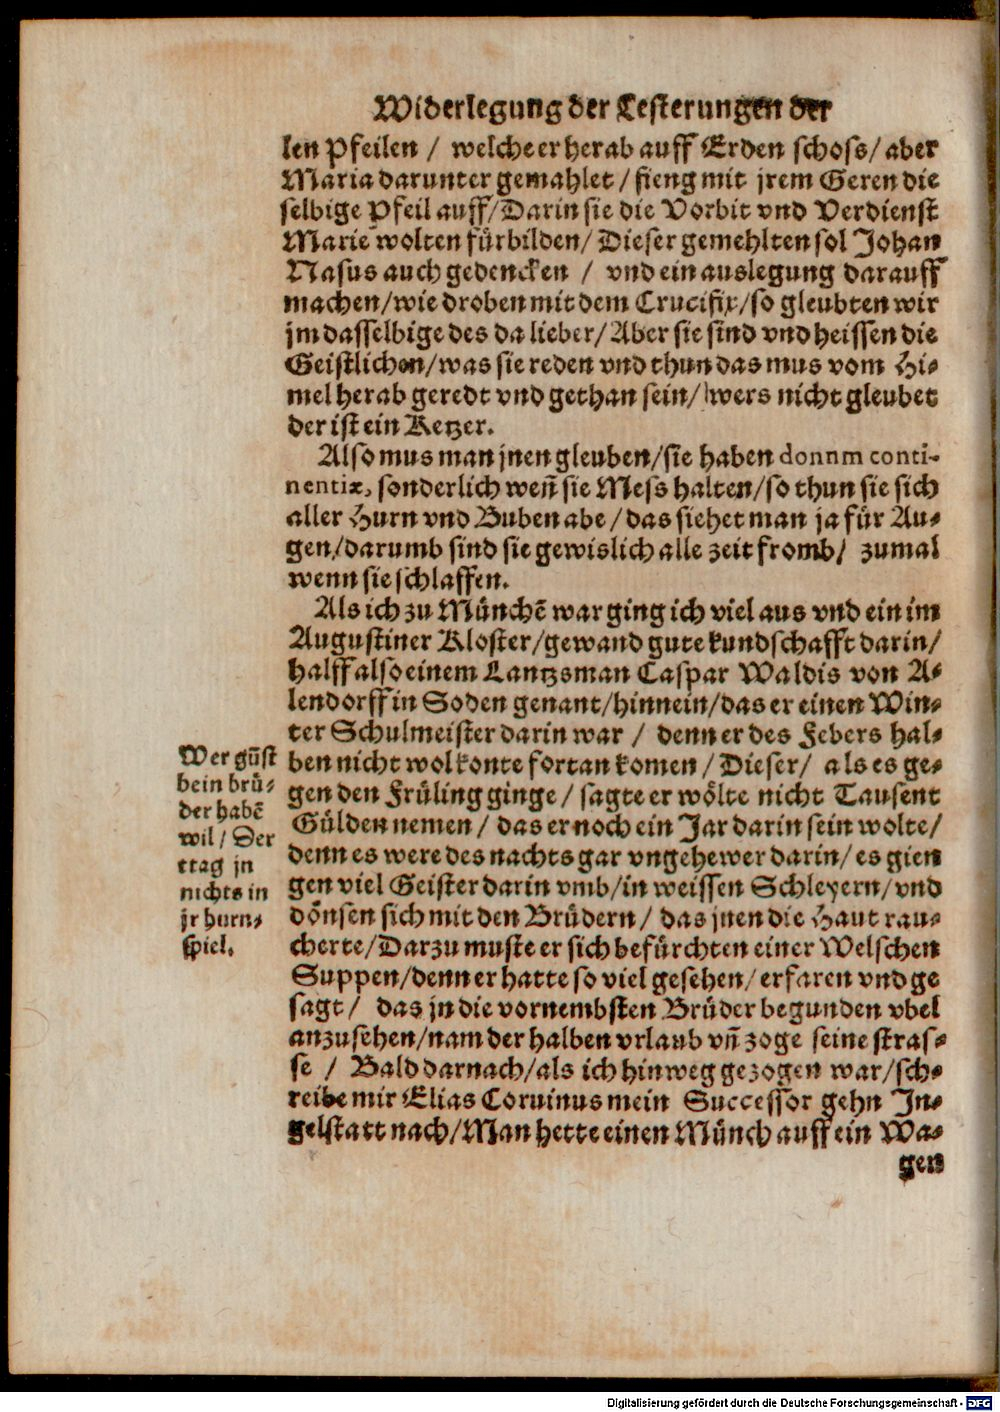 Widerlegung der Lesterungen der
len Pfeilen / welche er herab auff Erden schoss / aber
Maria darunter gemahlet / fieng mit jrem Geren die
selbige Pfeil auff / Darin sie die Vorbit vnd Verdienst
Marie wolten fürbilden / Dieser gemehlten sol Johan
Nasus auch gedencken / vnd ein auslegung darauff
machen / wie droben mit dem Crucifix / so gleubten wir
jm dasselbige des da lieber / Aber sie sind vnd heissen die
Geistlichen / was sie reden vnd thun das mus vom Hi-
mel herab geredt vnd gethan sein / wers nicht gleubet
der ist ein Ketzer.
Also mus man jnen gleuben / sie haben donnm conti-
nentiæ, sonderlich weñ sie Mess halten / so thun sie sich
aller Hurn vnd Buben abe / das siehet man ja für Au-
gen / darumb sind sie gewislich alle zeit fromb / zumal
wenn sie schlaffen.
Als ich zu Münchē war ging ich viel aus vnd ein im
Augustiner Kloster / gewand gute kundschafft darin /
halff also einem Lantzsman Caspar Waldis von A-
lendorff in Soden genant / hinnein / das er einen Win-
ter Schulmeister darin war / denn er des Febers hal-
ben nicht wol konte fortan komen / Dieser / als es ge-
gen den Früling ginge / sagte er wölte nicht Tausent
Gülden nemen / das er noch ein Jar darin sein wolte /
denn es were des nachts gar vngehewer darin / es gien
gen viel Geister darin vmb / in weissen Schleyern / vnd
dönsen sich mit den Brüdern / das jnen die Haut rau-
cherte / Darzu muste er sich befürchten einer Welschen
Suppen / denn er hatte so viel gesehen / erfaren vnd ge
sagt / das jn die vornembsten Brüder begunden vbel
anzusehen / nam der halben vrlaub vñ zoge seine stras-
se / Bald darnach / als ich hinweg gezogen war / sch-
reibe mir Elias Coruinus mein Successor gehn In-
gelstatt nach / Man hette einen Münch auff ein Wa-
gen
Wer gūst
bein brü-
der habē
wil / Der
trag jn
nichts in
jr hurn-
spiel.
Digitalisierung gefördert durch die Deutsche Forschungsgemeinschaft - DFG